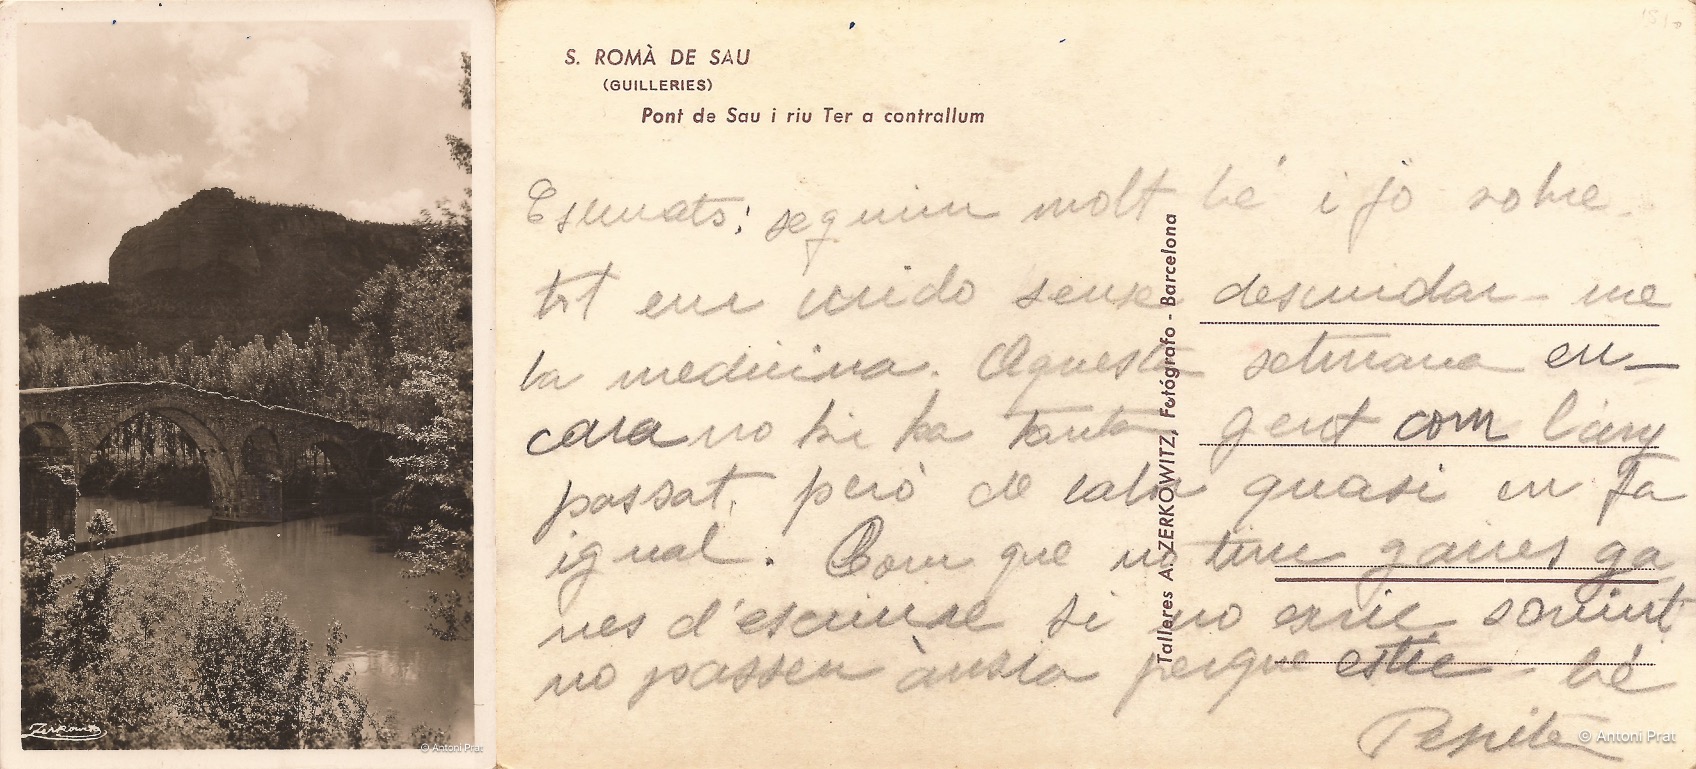 Zerkowitz
© Antoni Prat
S. ROMÀ DE SAU
(GUILLERIES)
Pont de Sau i riu Ter a contrallum
Talleres A. ZERKOWITZ, Fotógrafo - Barcelona
Estimats; seguim molt bé i jo sobre
tot em cuido sense descuidar-me
la medicina. Aquesta setmana en-
cara no hi ha tanta gent com l'any
passat, però de calor quasi en fa
igual. Com que no tinc ganes ga
nes d'escriure si no escric sovint
no passeu ànsia perque estic bé
Pepita
© Antoni Prat